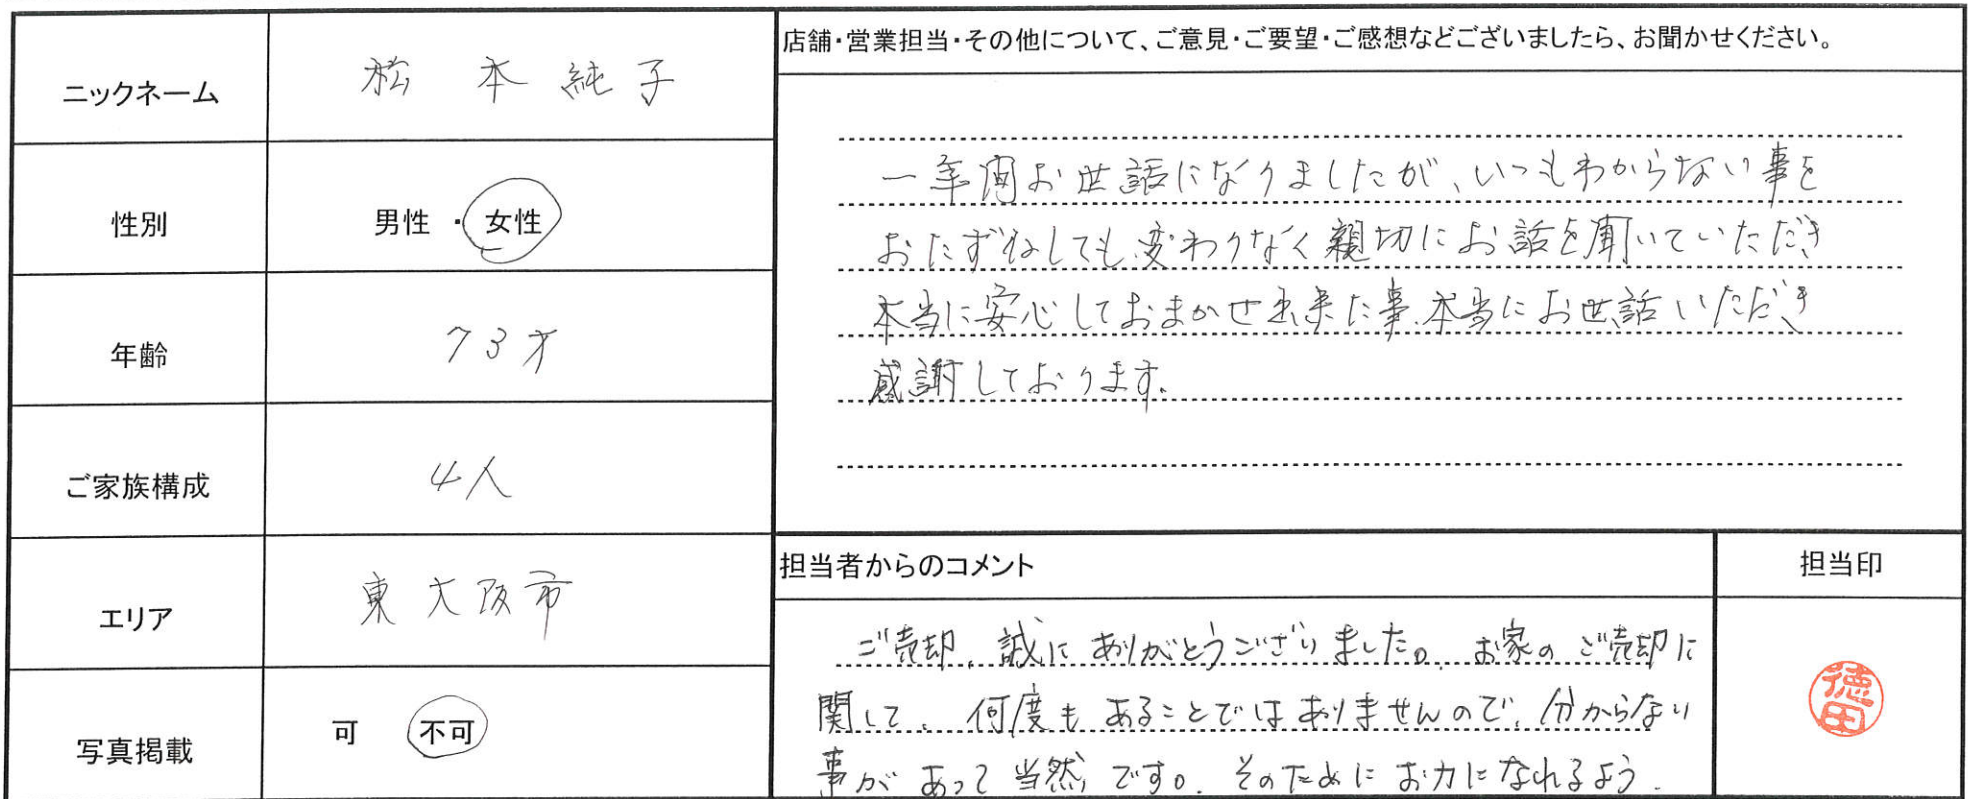 ニックネーム
松本純子
性別
男性・女性
年齢
73才
ご家族構成
4人
エリア
東大阪市
写真掲載
可 不可
店舗・営業担当・その他について、ご意見・ご要望・ご感想などございましたら、お聞かせください。
一年間お世話になりましたが、いつもわからない事を
おたずねしても変わりなく親切にお話を聞いていただき
本当に安心しておまかせ出来た事、本当にお世話いただき
感謝しております。
担当者からのコメント
ご売却、誠にありがとうございました。お家のご売却に
関して、何度もあることではありませんので、分からない
事があって当然です。そのためにお力になれるよう
担当印
徳田